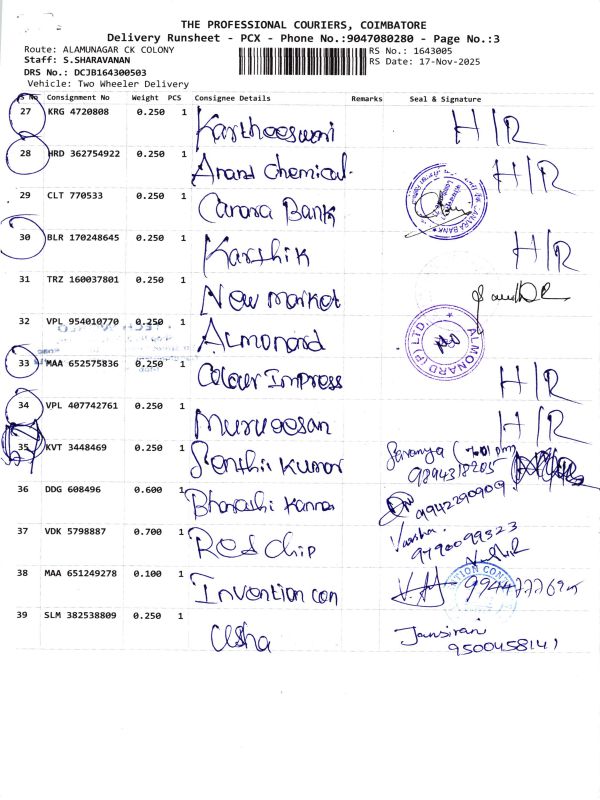 THE PROFESSIONAL COURIERS, COIMBATORE
Delivery Runsheet - PCX - Phone No.:9047080280 - Page No.:3
Route: ALAMUNAGAR CK COLONY
RS No.: 1643005
Staff: S.SHARAVANAN
RS Date: 17-Nov-2025
DRS No.: DCJB164300503
Vehicle: Two Wheeler Delivery
S No Consignment No Weight PCS Consignee Details Remarks Seal & Signature
27 KRG 4720808 0.250 1 Kartheeswari H/R
28 HRD 362754922 0.250 1 Anand Chemical. H/R
29 CLT 770533 0.250 1 Canara Bank
30 BLR 170248645 0.250 1 Karthik H/R
31 TRZ 160037801 0.250 1 New Market
32 VPL 954010770 0.250 1 Almonard
ALMONARD (P) LTD.
33 MAA 652575836 0.250 1 Colour Impress H/R
34 VPL 407742761 0.250 1 Murugesan H/R
35 KVT 3448469 0.250 1 Senthil Kumar Saranya
9894318205
36 DDG 608496 0.600 1 Bharathi Kannan 9942290909
37 VDK 5798887 0.700 1 Red Chip Varsha
9790099323
38 MAA 651249278 0.100 1 Invention Con
39 SLM 382538809 0.250 1 Usha Jansirani
9500458141